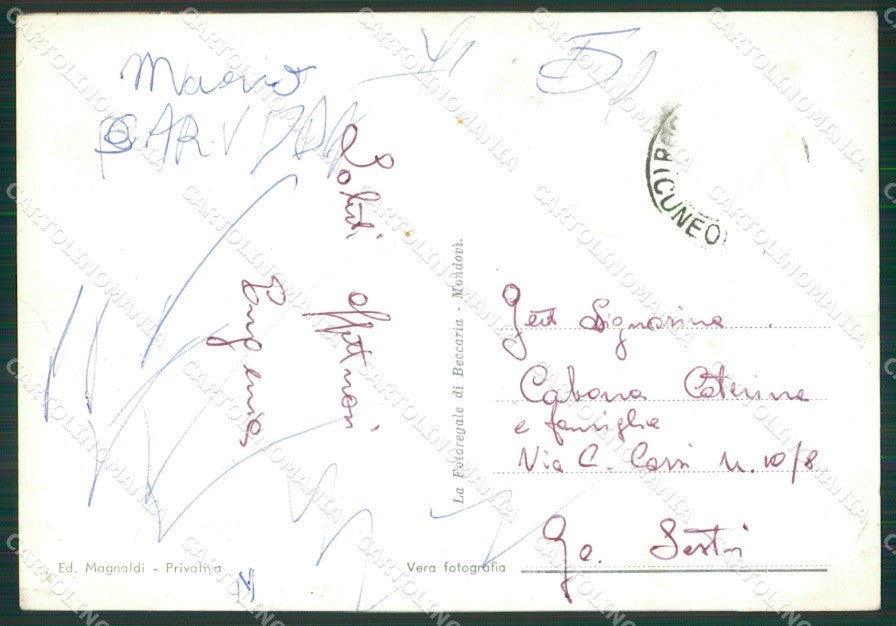 Saluti affettuosi
Eugenia
CUNEO
Gent. Signorina
Cabona Caterina
e famiglia
Via C. Corsi n. 10/8
Ge. Sestri
La Fotoregale di Beccaria - Mondovì.
Ed. Magnaldi - Privativa
Vera fotografia
CARTOLINOMANIA